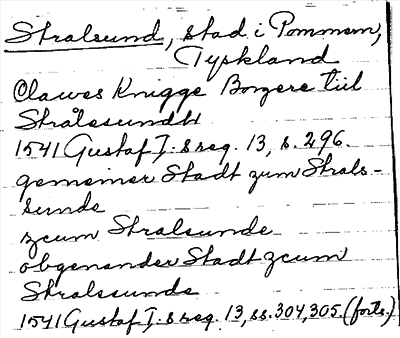 Stralsund, stad i Pommern,
Tyskland
Clawes Knigge Borgere till
Strålesundh
1541 Gustaf I:s reg. 13, s. 296.
gemeiner Stadt zum Strals-
sunde
zcum Stralsunde
obgenander Stadt zcum
Stralssunde
1541 Gustaf I:s reg. 13, ss. 304, 305. (forts.)